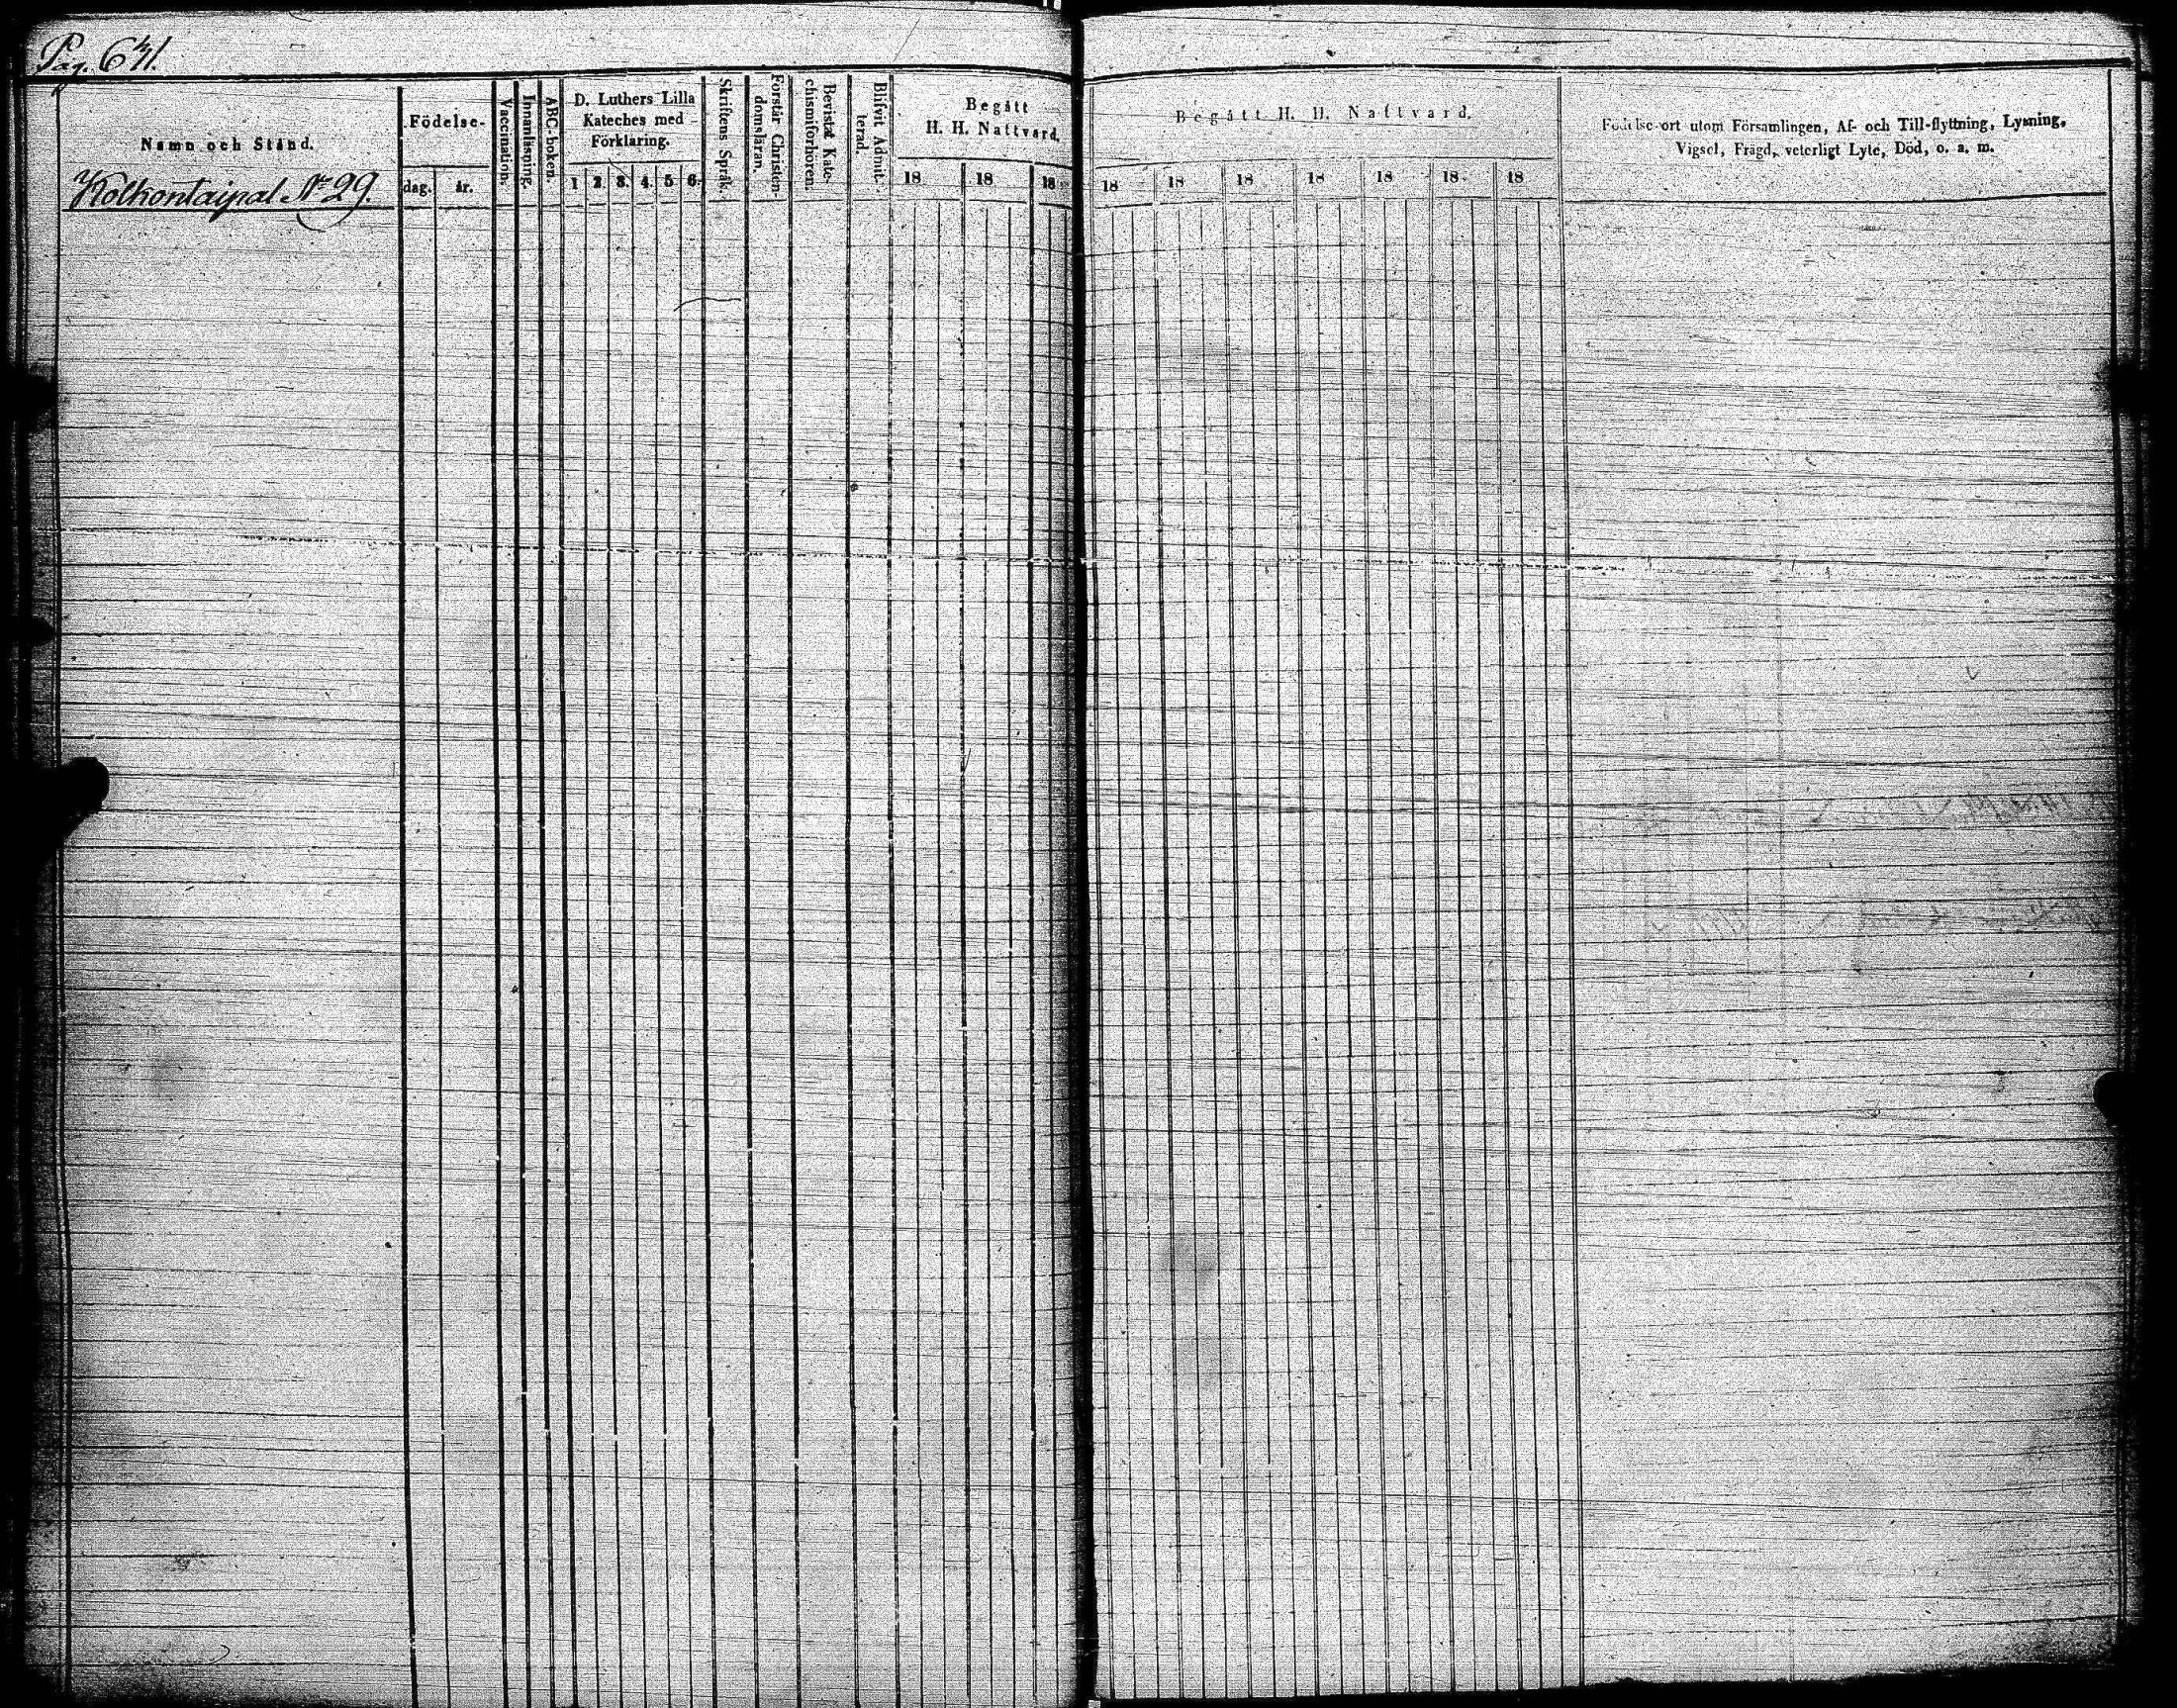 Pag. 641.
Namn och Stånd.
Kolkontaipal N:o 29.
Födelse-
dag.
år.
Vaccination.
Innanläsning.
ABC-boken.
D. Luthers Lilla
Kateches med
Förklaring.
1 2. 3. 4. 5 6.
Skriftens Språk.
Förstår Christen-
domsläran.
Bevistat Kate-
chismiförhören.
Blifvit Admit-
terad.
Begått
H. H. Nattvard.
18 18 18
Begått H. H. Nattvard.
18 18 18 18 18 18 18
Födelse-ort utom Församlingen, Af- och Till-flyttning, Lysning,
Vigsel, Frägd, veterligt Lyte, Död, o. s. m.